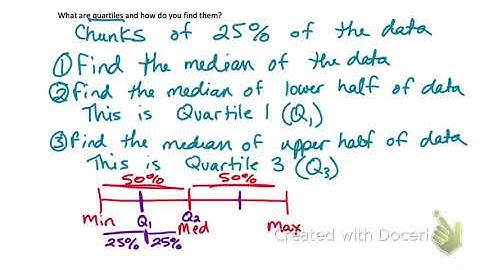 What are quartiles and how do you find them?
Chunks of 25% of the data
① Find the median of the data
② Find the median of lower half of data
This is Quartile 1 (Q₁)
③ Find the median of upper half of data
This is Quartile 3 (Q₃)
50% 50%
Min Q₁ Q₂ Max
Med
25% 25%
Created with Doceri